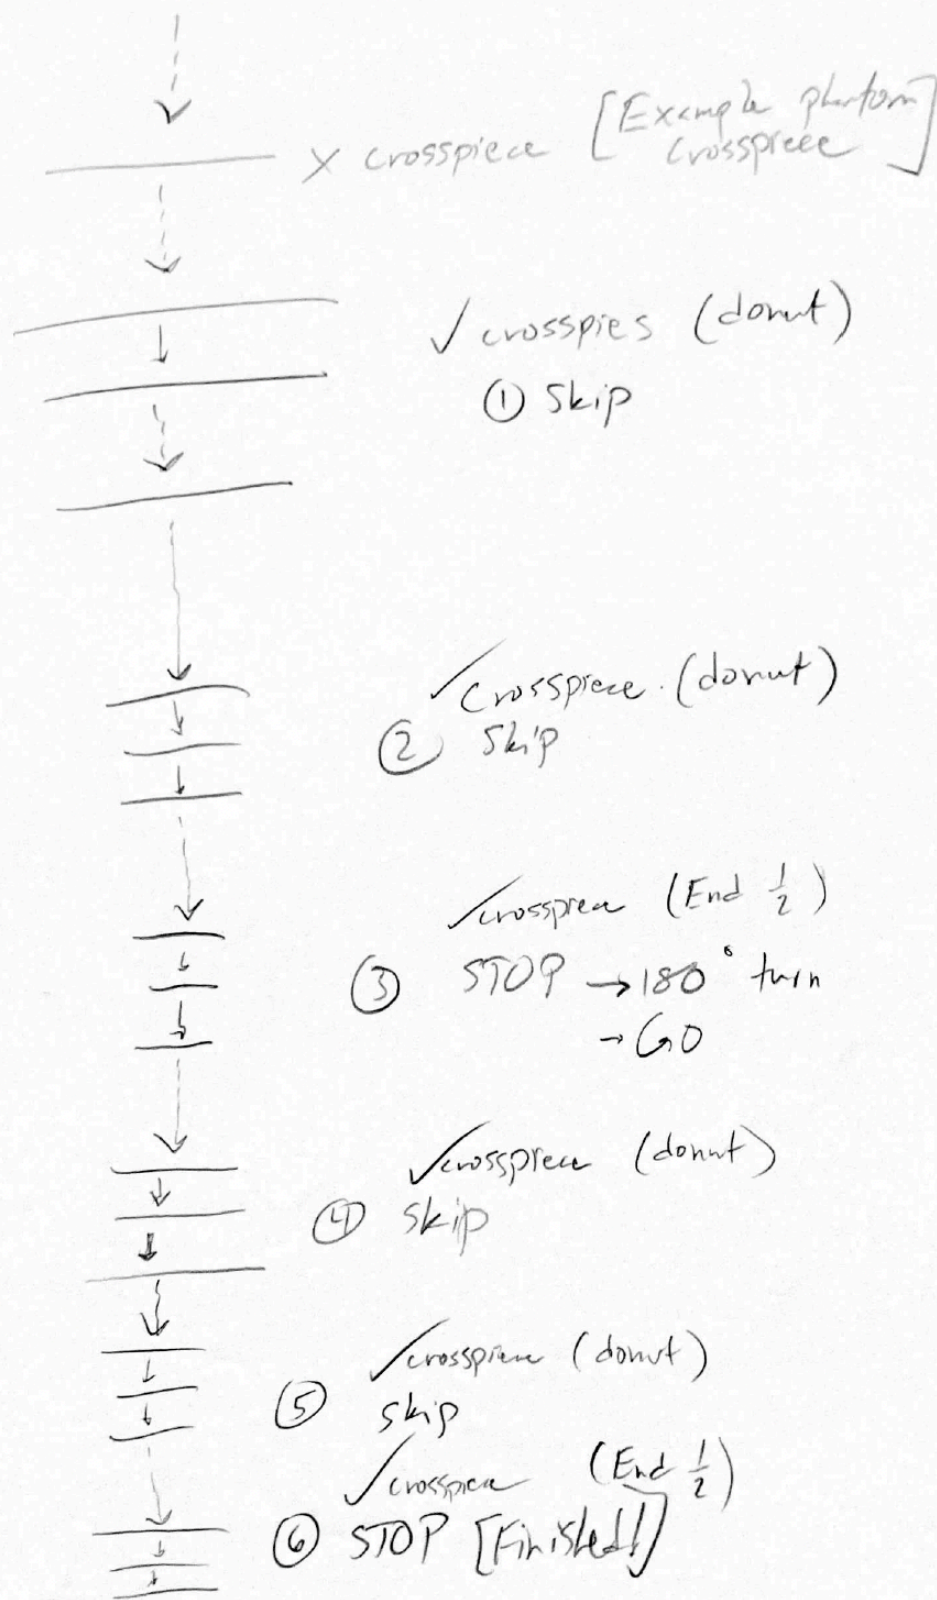 X crosspiece [Example phantom
crosspiece]
✓ crosspies (donut)
① Skip
✓ Crosspiece. (donut)
② Skip
✓ crosspiece (End 1/2)
③ STOP → 180° turn
→ GO
✓ crosspiece (donut)
④ skip
✓ crosspiece (donut)
⑤ skip
✓ crosspiece (End 1/2)
⑥ STOP [Finished!]